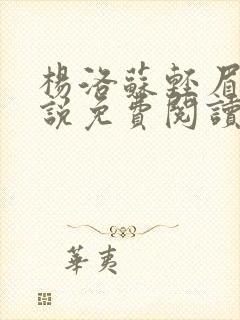 楊洛蘇輕眉
說免費閱讀
華夷